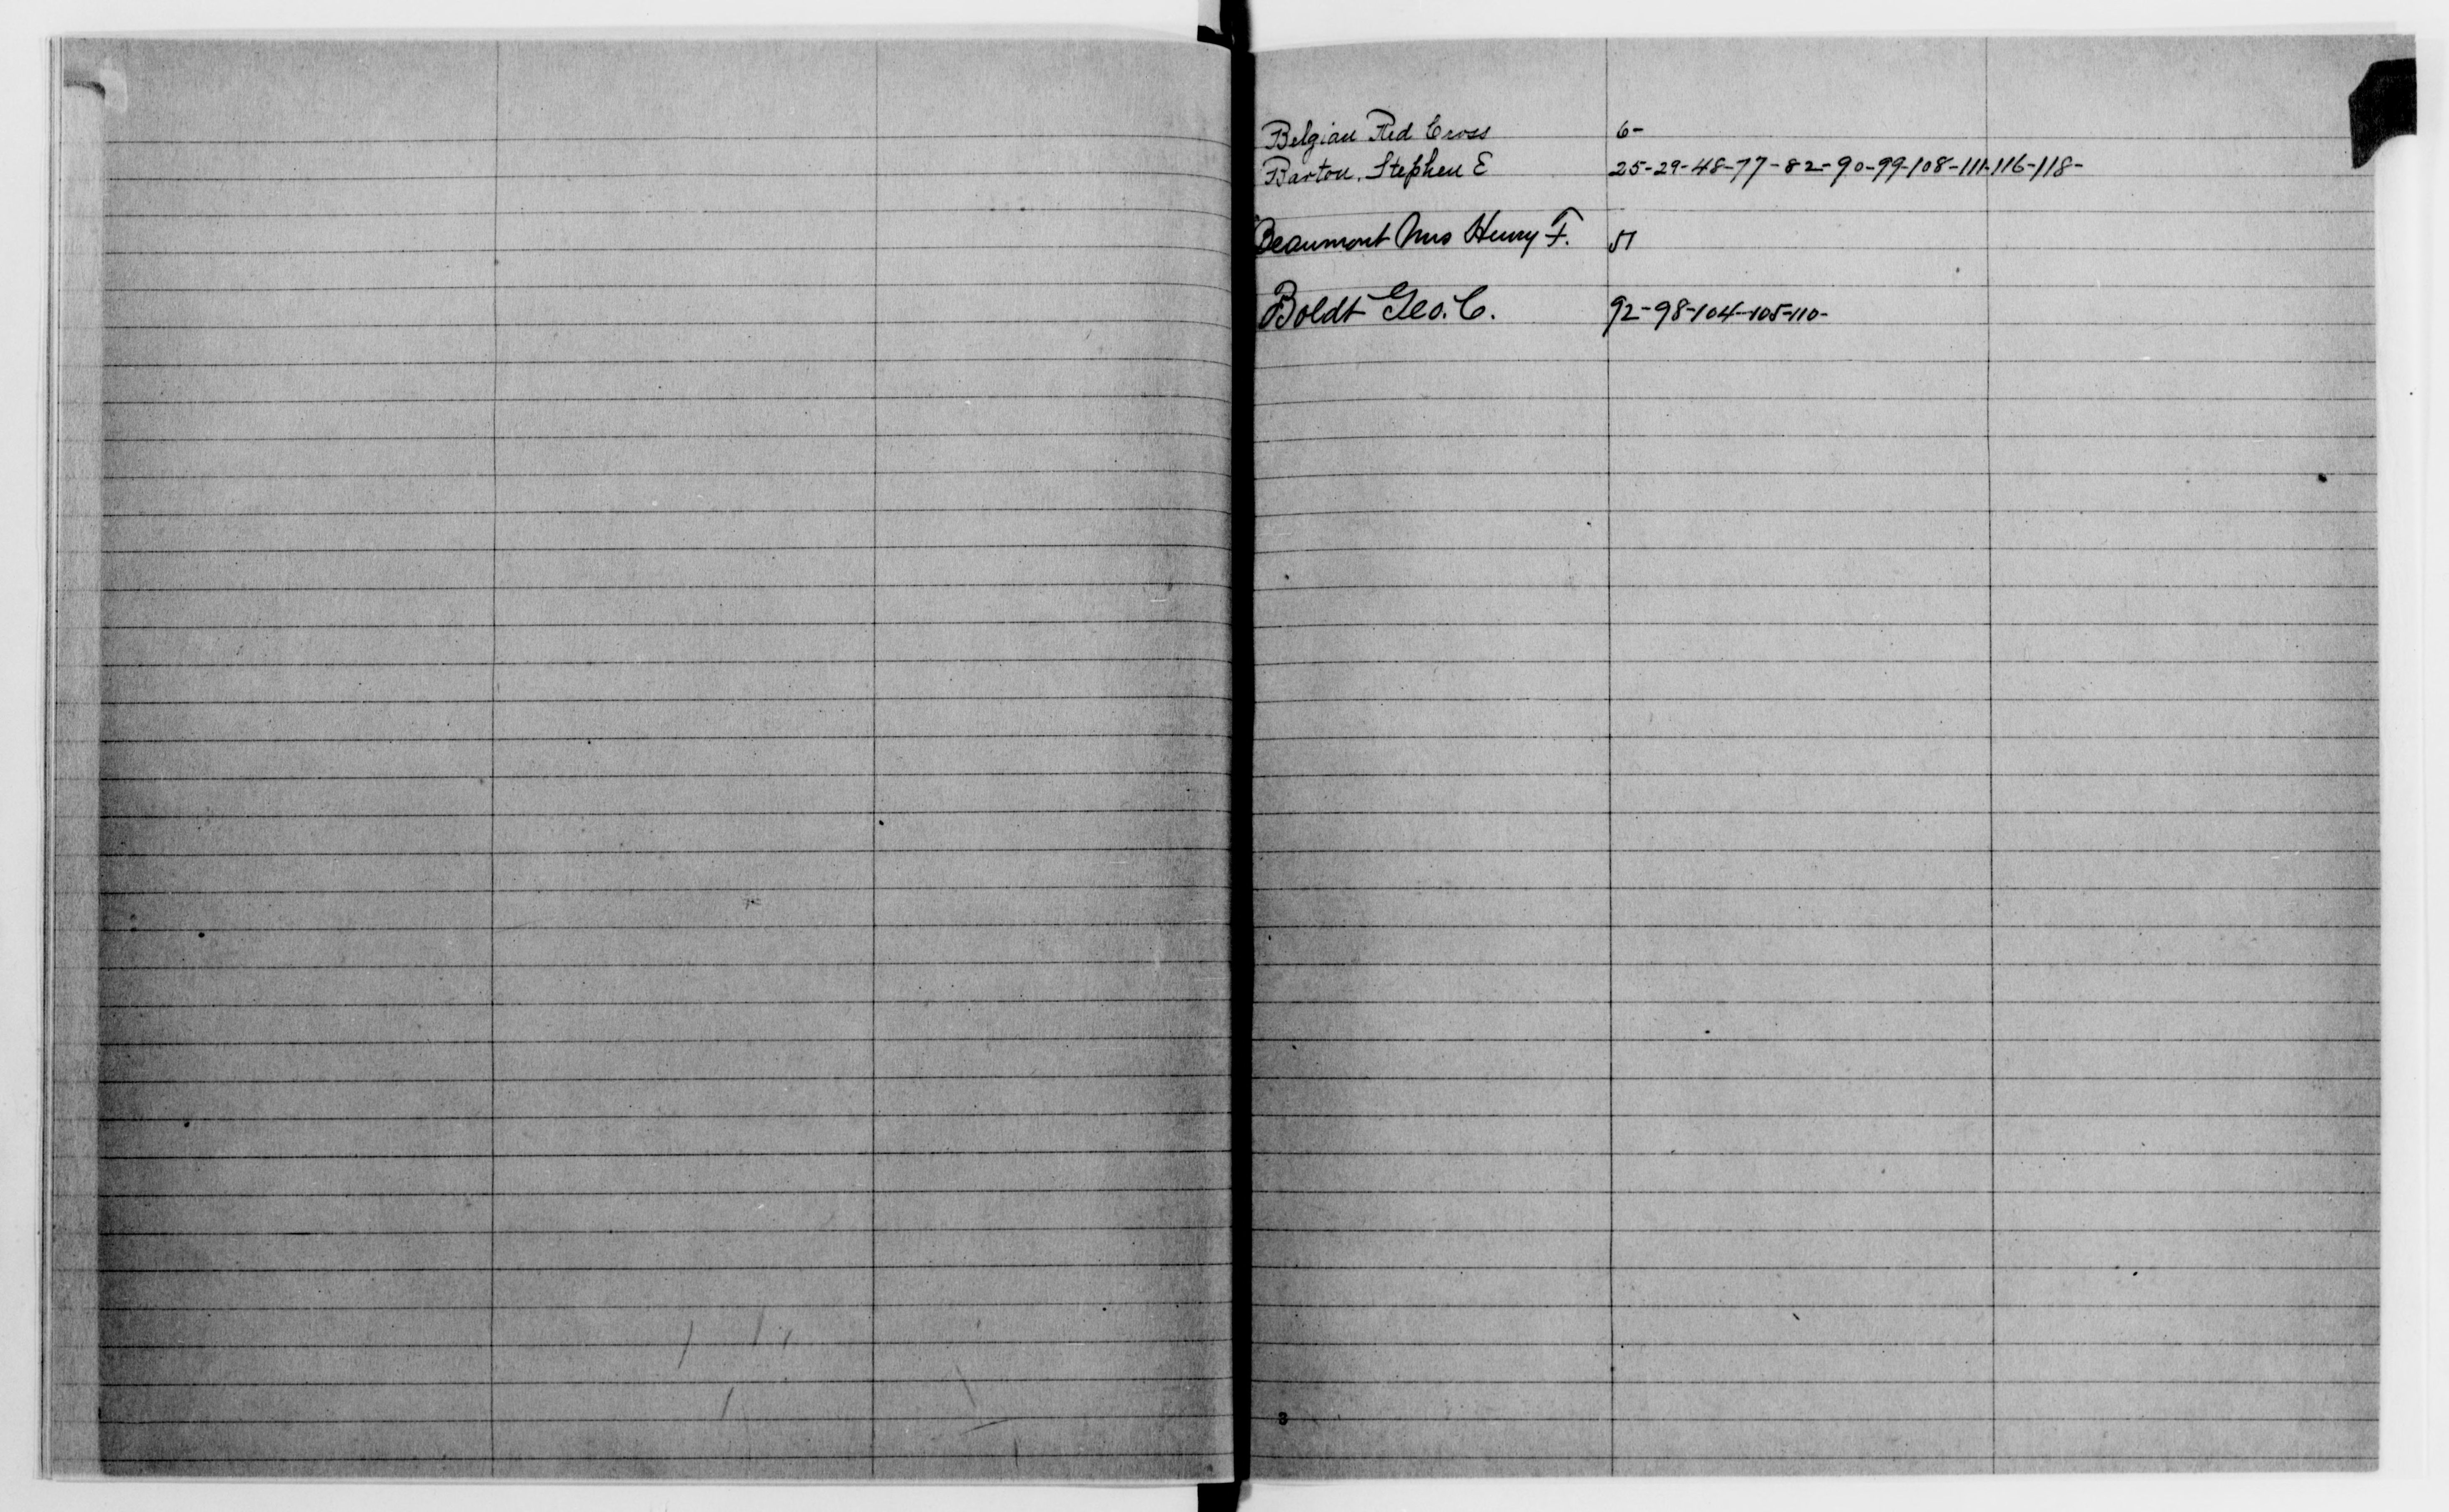 Belgian Red Cross 6-
Barton, Stephen E 25-29-48-77-82-90-99-108-111-116-118-
Beaumont Mrs Henry F. 51
Boldt Geo. C. 92-98-104-105-110-
3